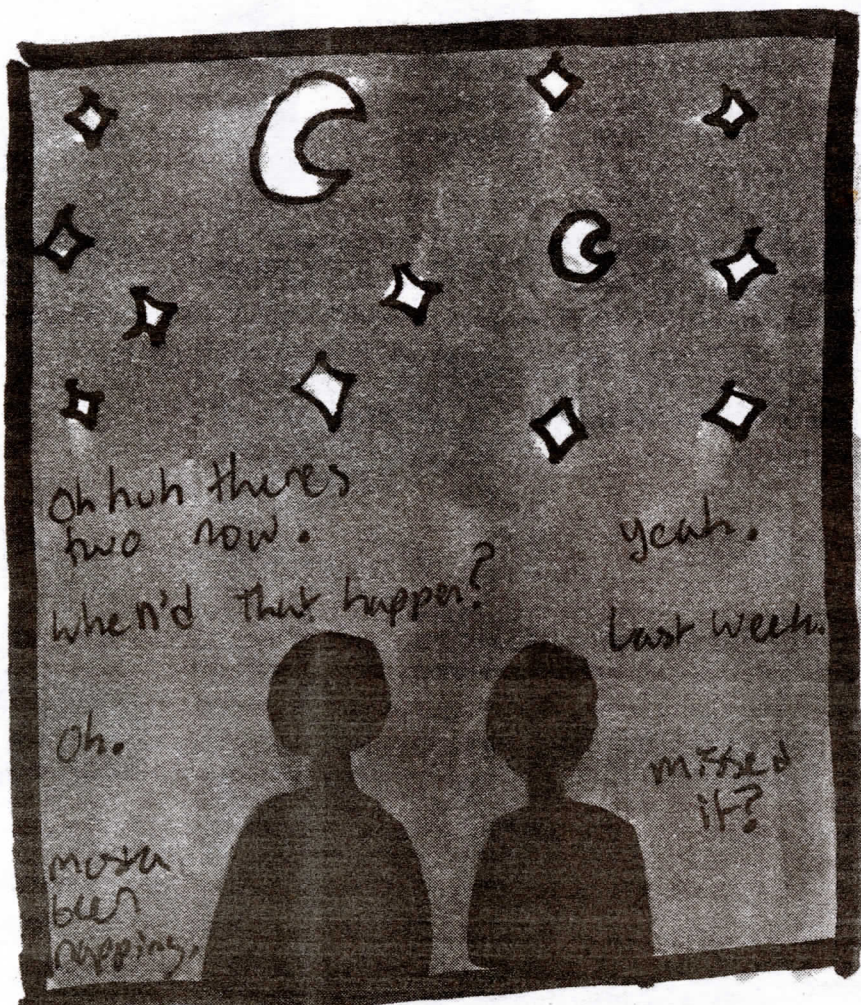 Oh huh theres
two now.
yeah.
when'd that happen?
Last week.
Oh.
missed
it?
musta
been
napping.